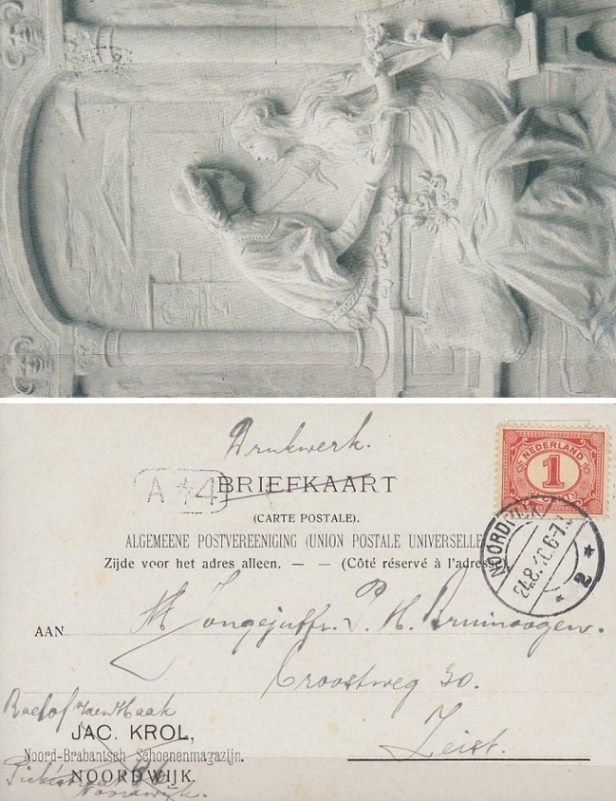 Drukwerk.
NEDERLAND
1
A 44
BRIEFKAART
(CARTE POSTALE).
ALGEMEENE POSTVEREENIGING (UNION POSTALE UNIVERSELLE)
Zijde voor het adres alleen. — — (Côté réservé à l'adresse).
NOORDWIJK
24.8. 6-7
2
AAN
Jongejuffr. P. H. Bruinoogen.
Croostweg 30.
Zeist.
Roelof
JAC. KROL,
Noord-Brabantsch Schoenenmagazijn,
NOORDWIJK.
Noordwijk.